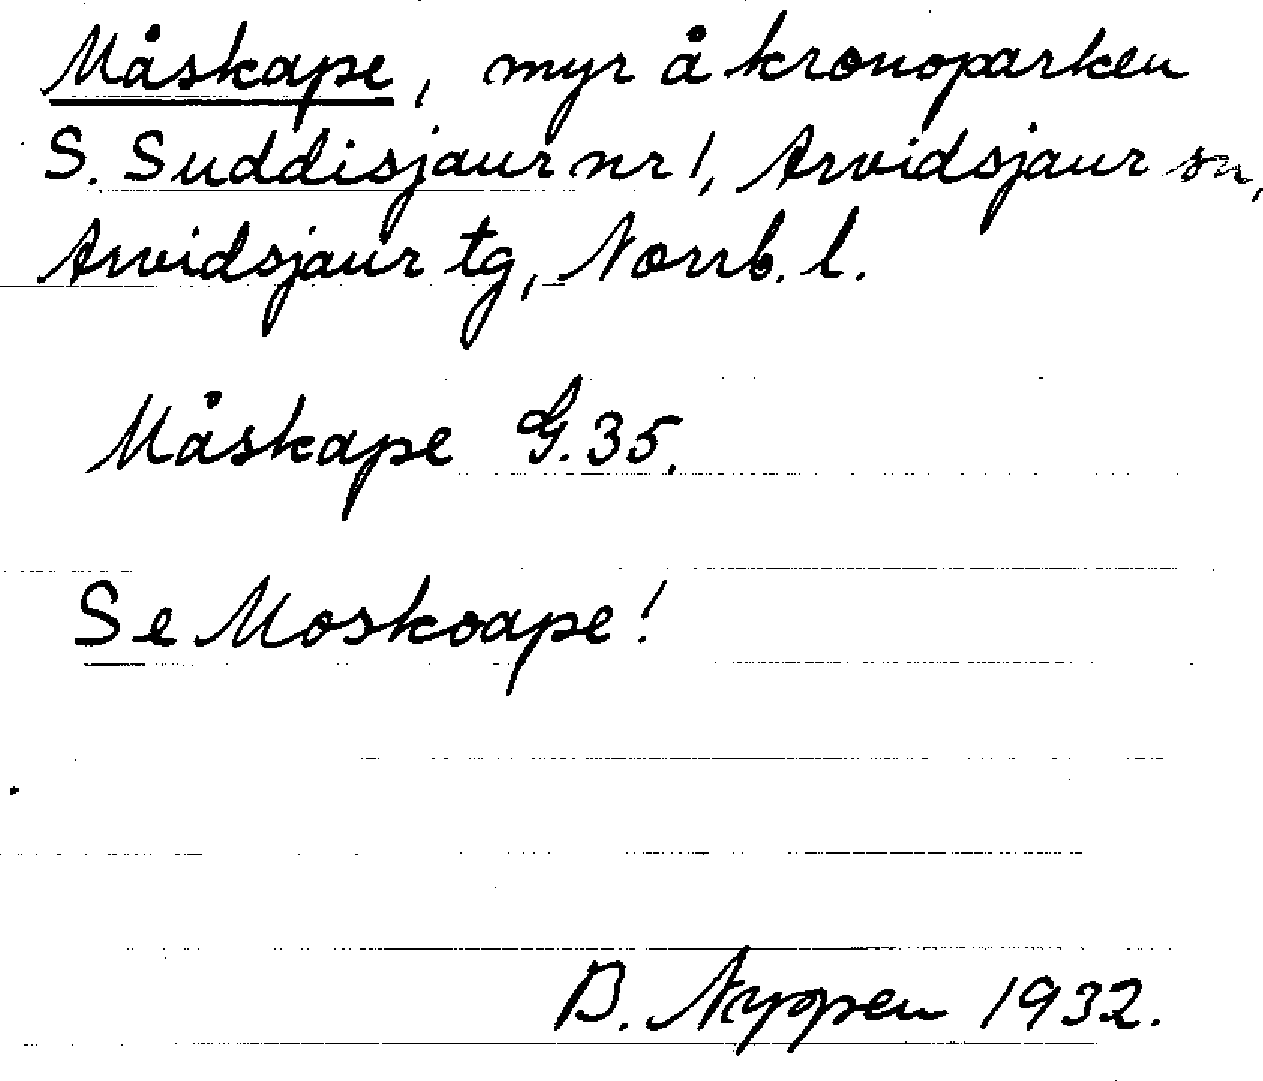 Måskape, myr å kronoparken
S. Suddisjaur nr 1, Arvidsjaur sn,
Arvidsjaur tg, Norrb. l.
Måskape G. 35.
Se Moskoape!
B. Nyppen 1932.